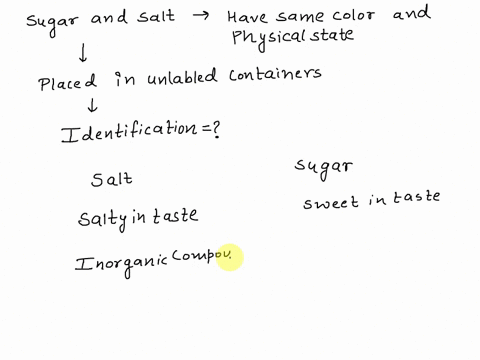 Sugar and salt → Have same color and
Physical state
↓
Placed in unlabled containers
↓
Identification=?
Salt
Sugar
Salty in taste
Sweet in taste
Inorganic Compou